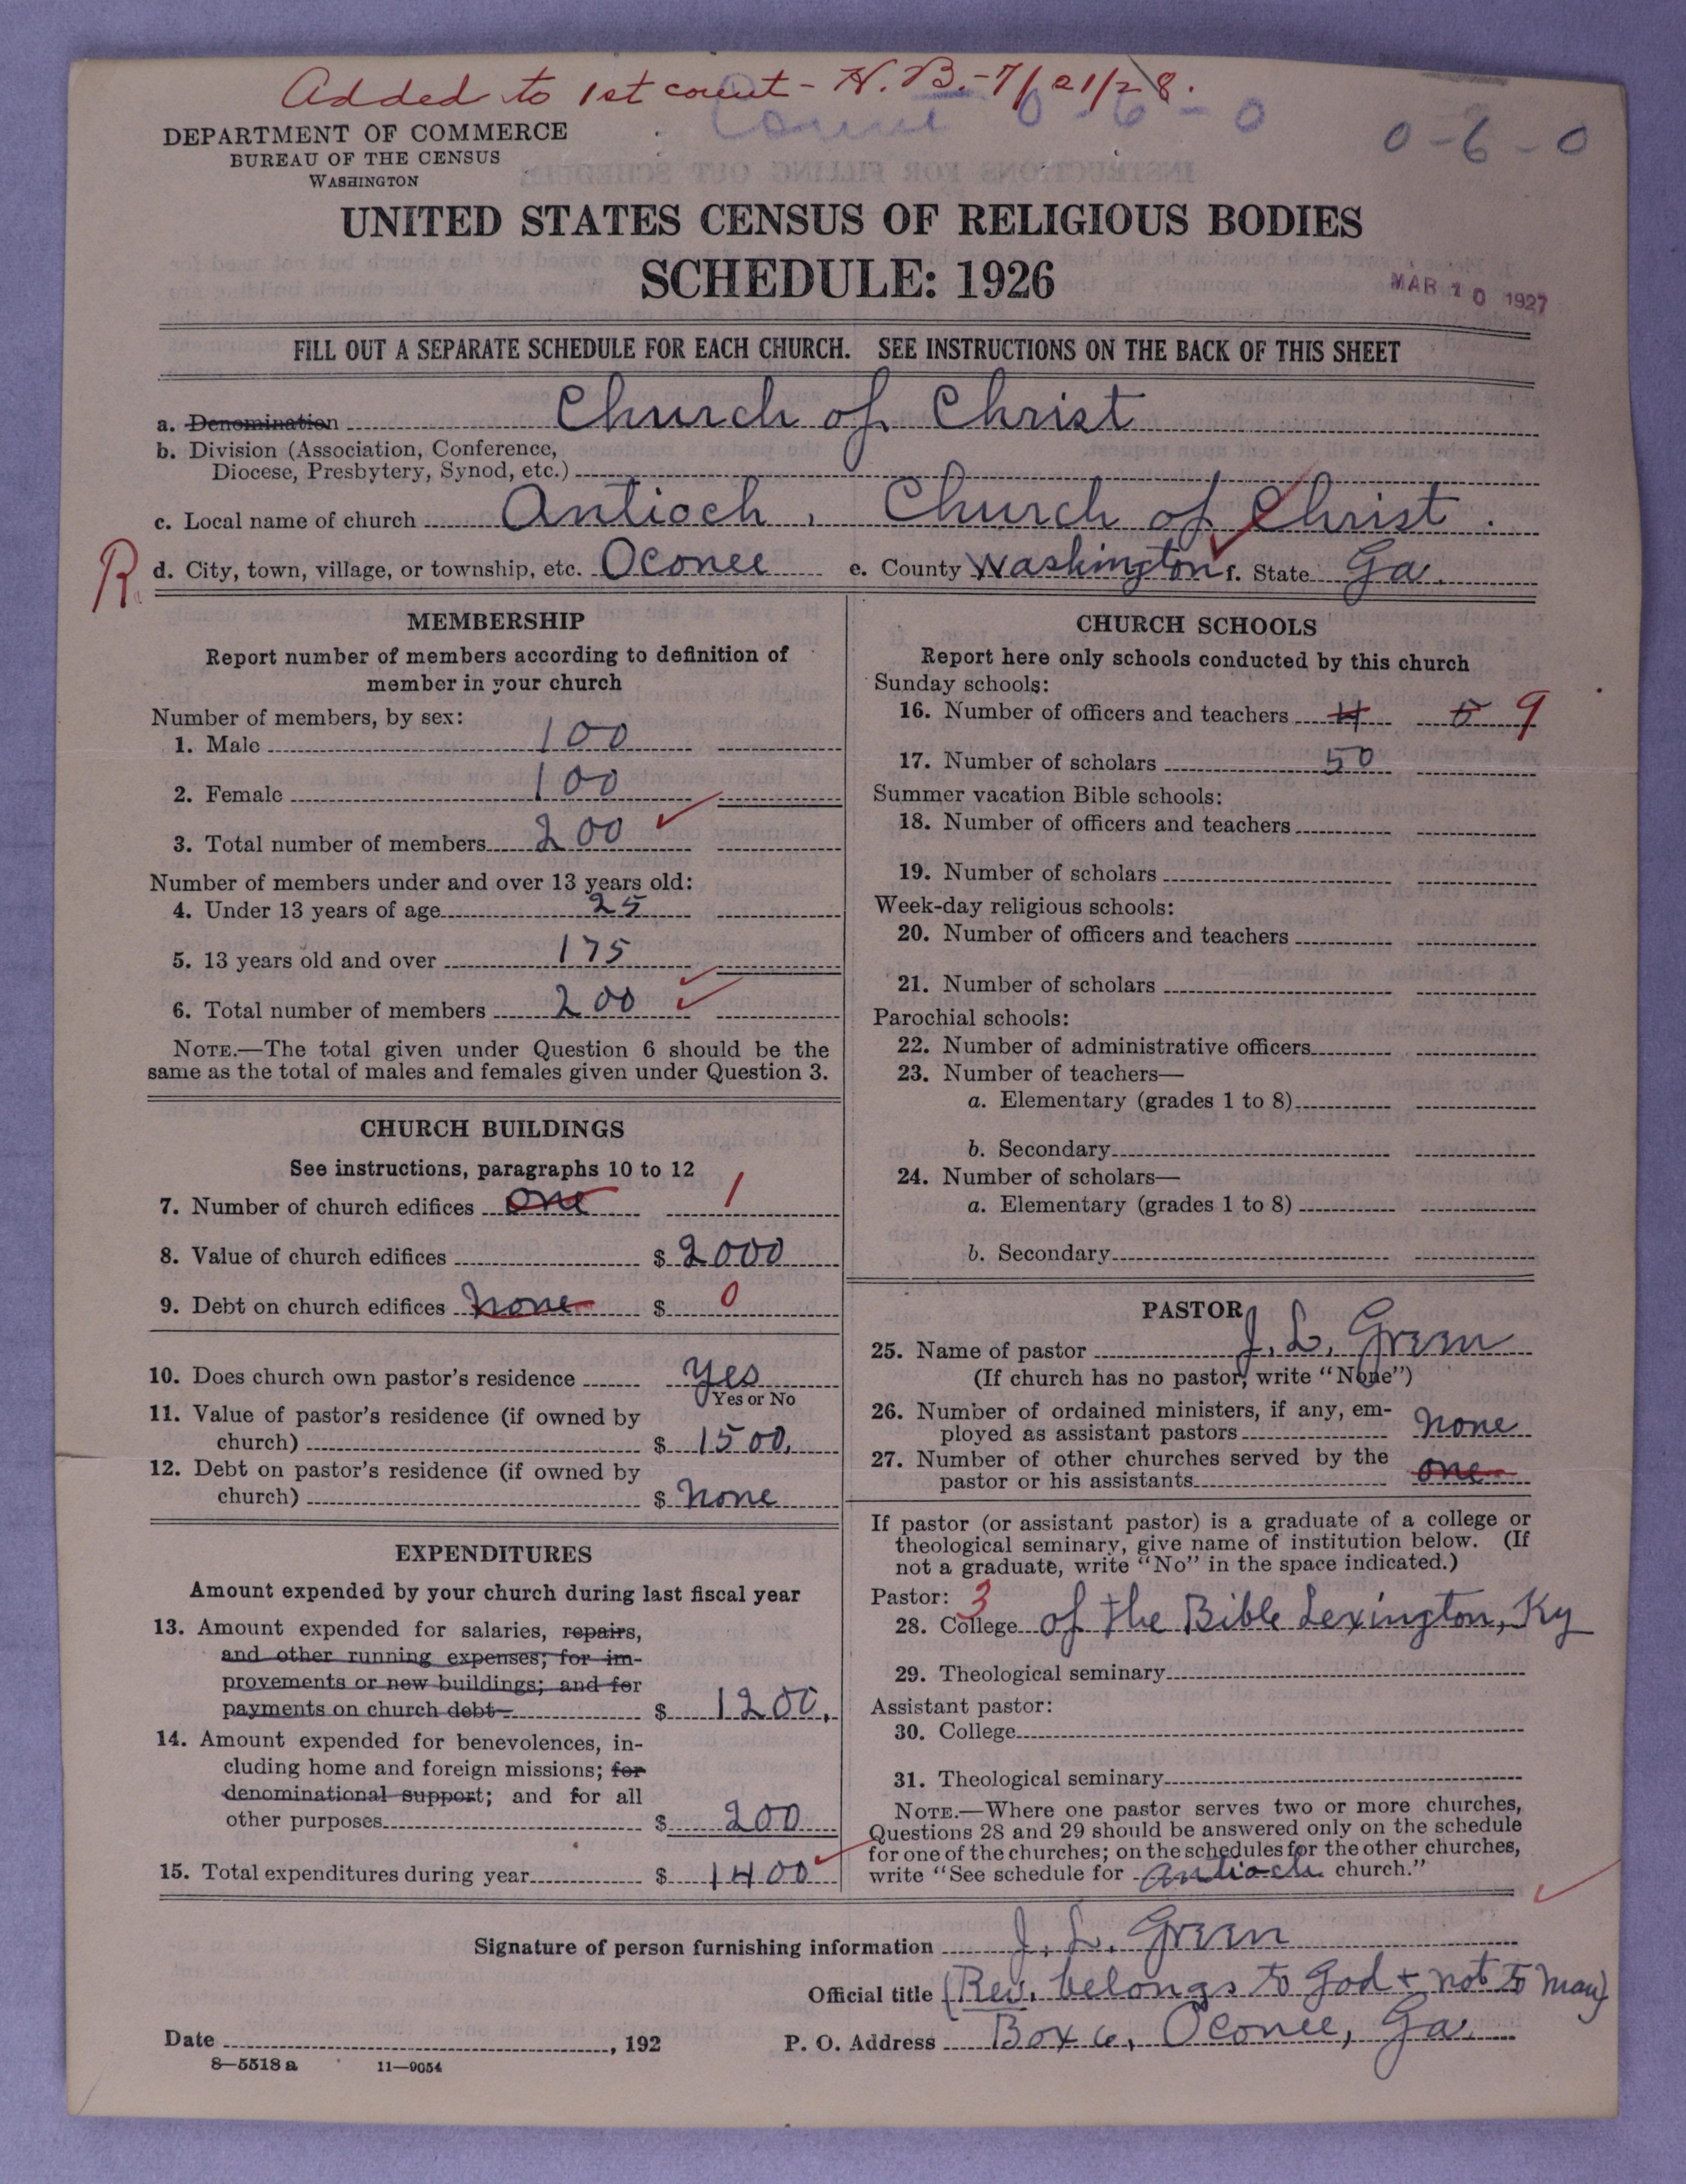 Added to 1st count - H. B. - 7/21/28.
0 - 6 - 0
0 - 6 - 0
DEPARTMENT OF COMMERCE
BUREAU OF THE CENSUS
WASHINGTON
UNITED STATES CENSUS OF RELIGIOUS BODIES
SCHEDULE: 1926
MAR 10 1927
FILL OUT A SEPARATE SCHEDULE FOR EACH CHURCH. SEE INSTRUCTIONS ON THE BACK OF THIS SHEET
a. Denomination Church of Christ
b. Division (Association, Conference,
Diocese, Presbytery, Synod, etc.)
c. Local name of church Antioch, Church of Christ.
R. d. City, town, village, or township, etc. Oconee e. County Washington f. State Ga.
MEMBERSHIP
Report number of members according to definition of
member in your church
Number of members, by sex:
1. Male 100
2. Female 100
3. Total number of members 200
Number of members under and over 13 years old:
4. Under 13 years of age 25
5. 13 years old and over 175
6. Total number of members 200
NOTE.—The total given under Question 6 should be the
same as the total of males and females given under Question 3.
CHURCH BUILDINGS
See instructions, paragraphs 10 to 12
7. Number of church edifices one 1
8. Value of church edifices $ 2000
9. Debt on church edifices none $ 0
10. Does church own pastor's residence yes
Yes or No
11. Value of pastor's residence (if owned by
church) $ 1500.
12. Debt on pastor's residence (if owned by
church) $ none
EXPENDITURES
Amount expended by your church during last fiscal year
13. Amount expended for salaries, repairs,
and other running expenses; for im-
provements or new buildings; and for
payments on church debt $ 1200.
14. Amount expended for benevolences, in-
cluding home and foreign missions; for
denominational support; and for all
other purposes $ 200
15. Total expenditures during year $ 1400
CHURCH SCHOOLS
Report here only schools conducted by this church
Sunday schools:
16. Number of officers and teachers 4 5 9
17. Number of scholars 50
Summer vacation Bible schools:
18. Number of officers and teachers
19. Number of scholars
Week-day religious schools:
20. Number of officers and teachers
21. Number of scholars
Parochial schools:
22. Number of administrative officers
23. Number of teachers—
a. Elementary (grades 1 to 8)
b. Secondary
24. Number of scholars—
a. Elementary (grades 1 to 8)
b. Secondary
PASTOR
25. Name of pastor J. L. Green
(If church has no pastor, write "None")
26. Number of ordained ministers, if any, em-
ployed as assistant pastors none
27. Number of other churches served by the
pastor or his assistants one
If pastor (or assistant pastor) is a graduate of a college or
theological seminary, give name of institution below. (If
not a graduate, write "No" in the space indicated.)
Pastor: 3
28. College of the Bible Lexington, Ky
29. Theological seminary
Assistant pastor:
30. College
31. Theological seminary
NOTE.—Where one pastor serves two or more churches,
Questions 28 and 29 should be answered only on the schedule
for one of the churches; on the schedules for the other churches,
write "See schedule for Antioch church."
Signature of person furnishing information J. L. Green
Official title (Rev. belongs to God + not to man)
Date , 192
P. O. Address Box 6, Oconee, Ga.
8—5518 a 11—9054